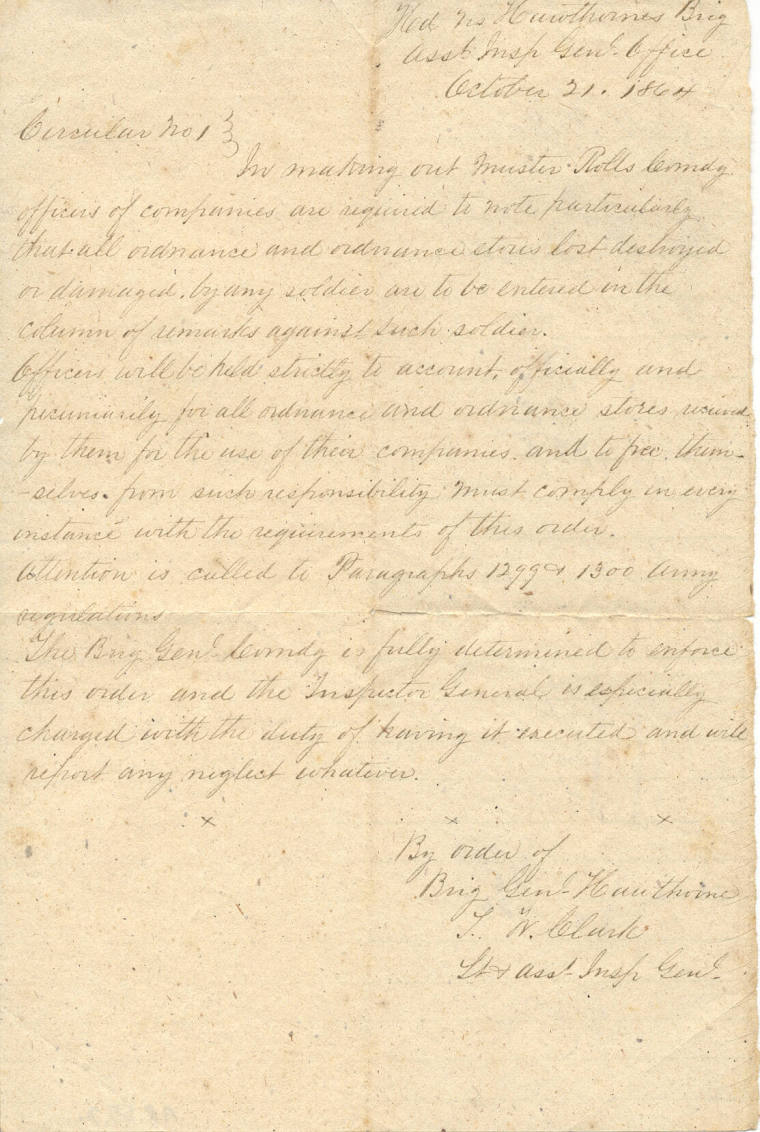 Hd Qrs Hawthornes Brig
Asst Insp Genl Office
October 21. 1864
Circular No 1 }
In making out Muster Rolls Comdg
officers of companies are required to note particularly
that all ordnance and ordnance stores lost destroyed
or damaged. by any soldier are to be entered in the
column of remarks against such soldier.
Officers will be held strictly to account, officially and
pecuniarily for all ordnance and ordnance stores received
by them for the use of their companies. and to free them-
-selves. from such responsibility must comply in every
instance with the requirements of this order.
Attention is called to Paragraphs 1299 & 1300 Army
regulations
The Brig Genl Comdg is fully determined to enforce
this order and the Inspector General is especially
charged with the duty of having it executed and will
report any neglect whatever.
x x x
By order of
Brig Genl Hawthorne
W. Clark
Lt & Asst Insp Genl